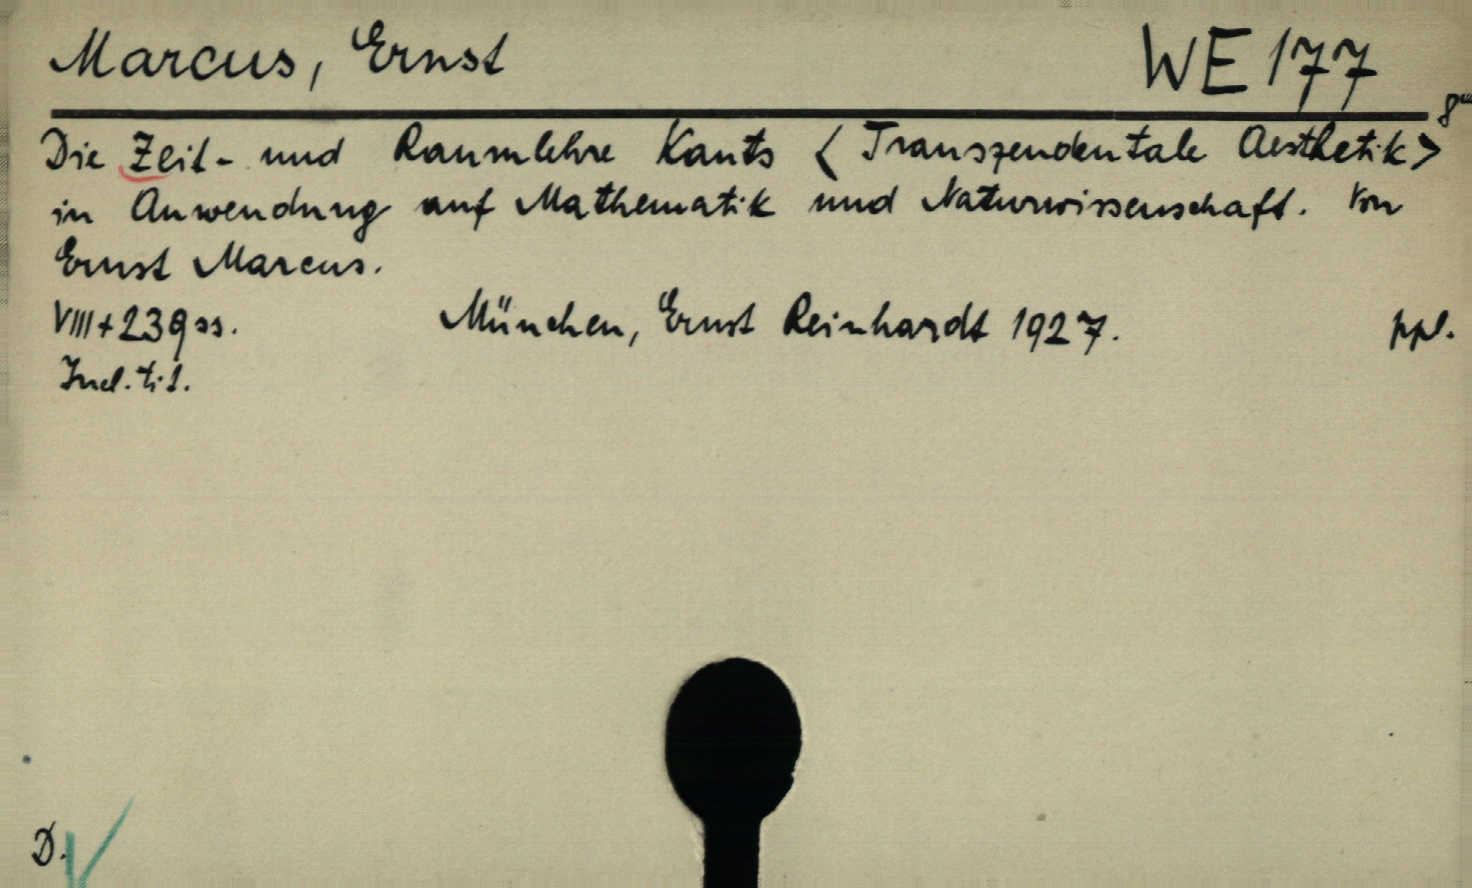 Marcus, Ernst WE 177
8°
Die Zeit- und Raumlehre Kants <Transzendentale Aesthetik>
in Anwendung auf Mathematik und Naturwissenschaft. Von
Ernst Marcus.
VIII+239 ss. München, Ernst Reinhardt 1927. ppl.
Incl. tit.
D.